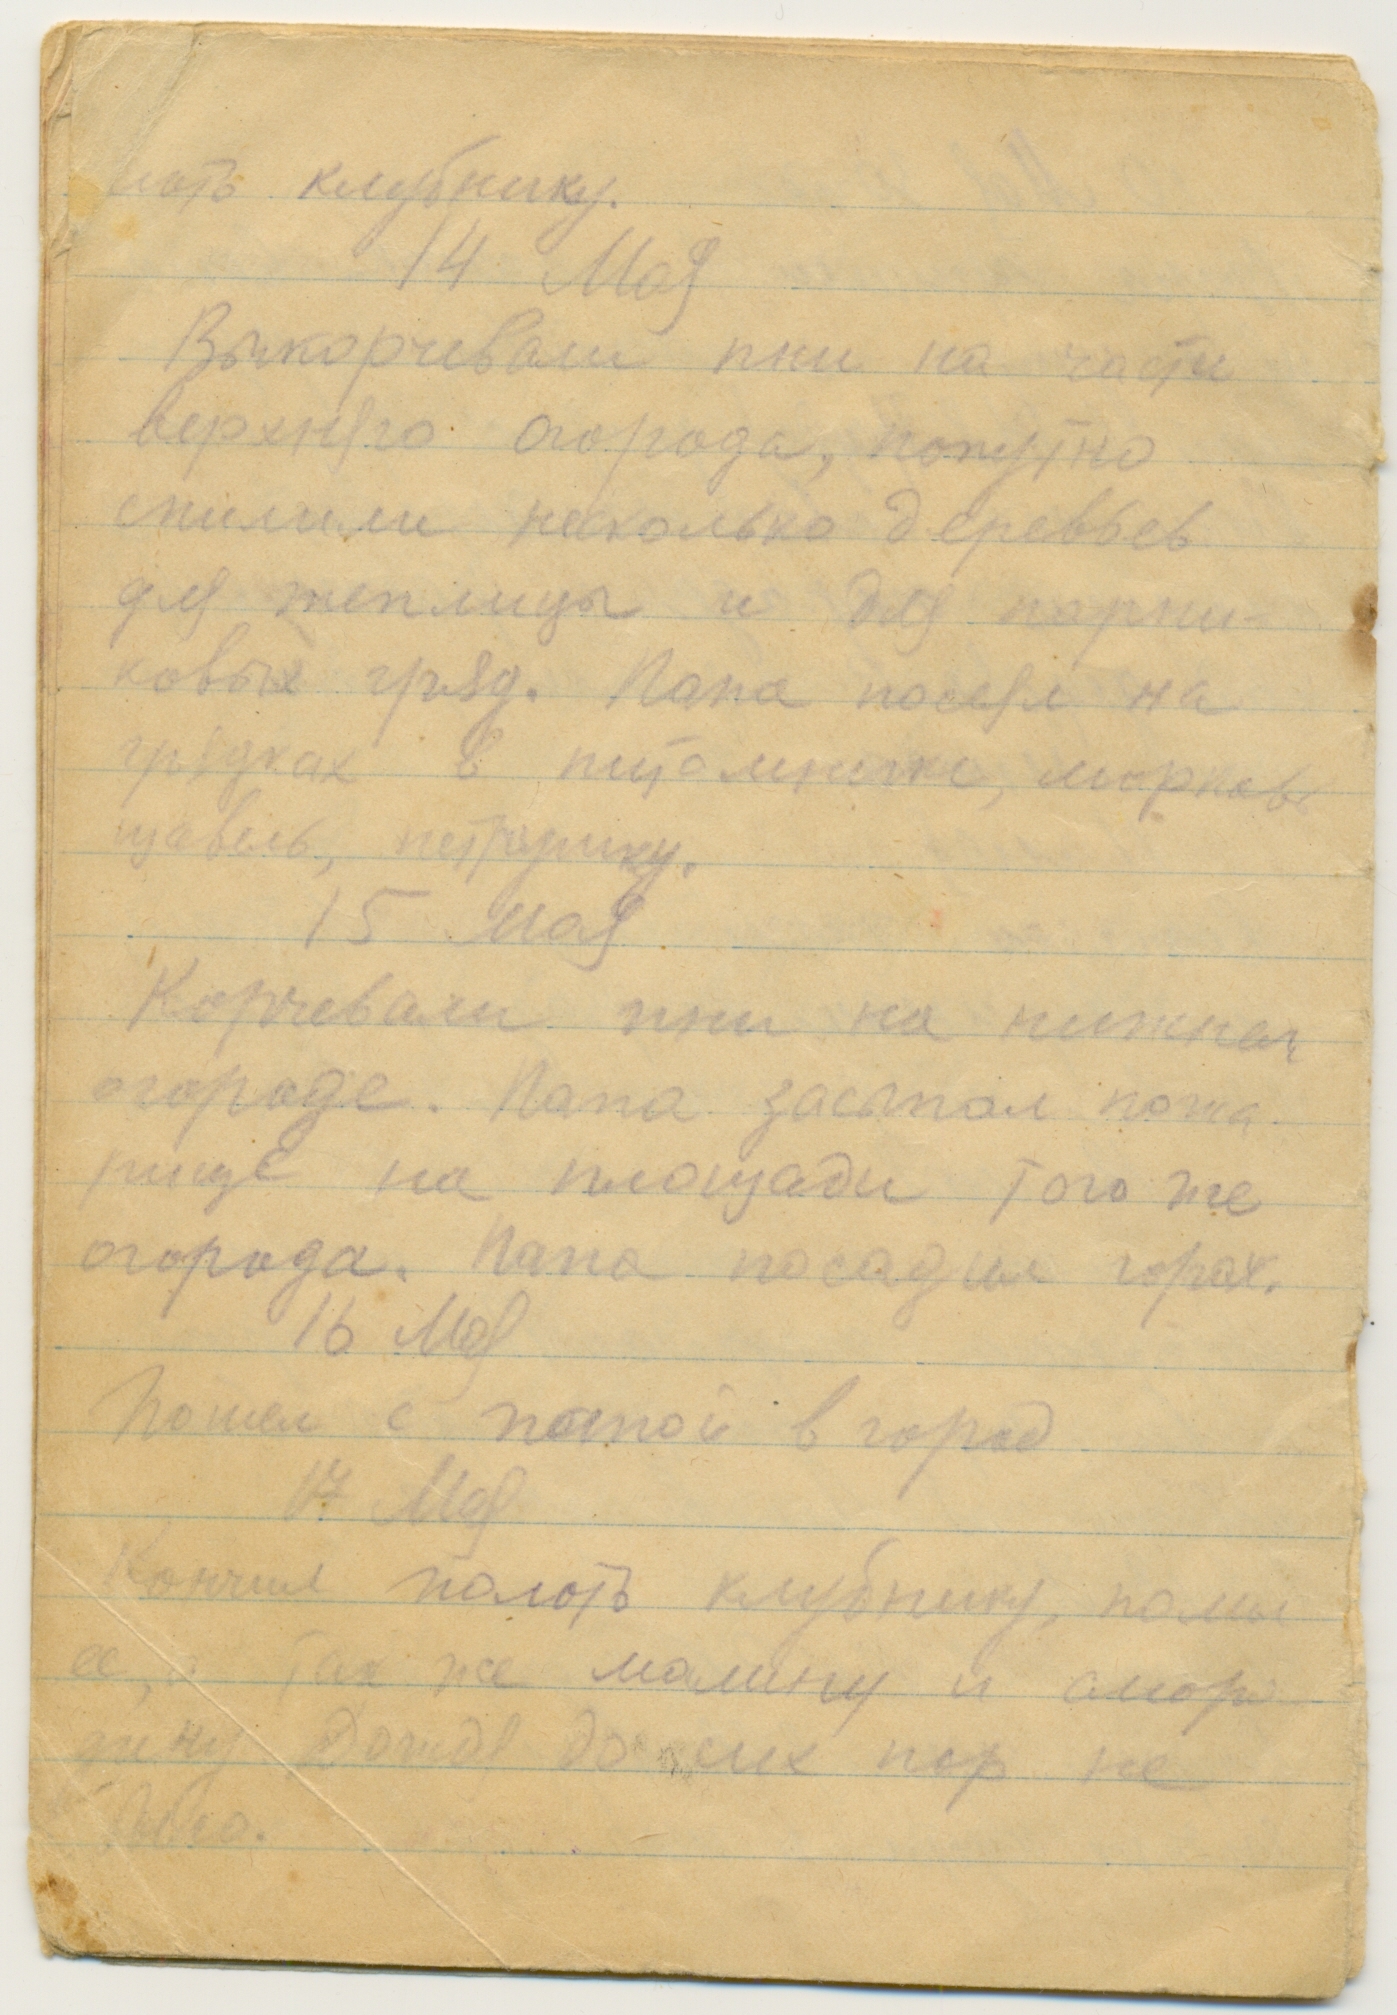 лоть клубнику.
14 Мая
Выкорчевали пни на части
верхняго огорода, попутно
спилили несколько деревьев
для теплицы и для парни-
ковых гряд. Папа посеял на
грядках в питомнике, морковь
щавель, петрушку.
15 Мая
Корчевали пни на нижнем
огороде. Папа засыпал пожа
рище на площади того же
огорода. Папа посадил горох.
16 Мая
Пошел с папой в город
17 Мая
Кончил полоть клубнику, полил
ее, а так же малину и сморо
дину Дождя до сих пор не
было.